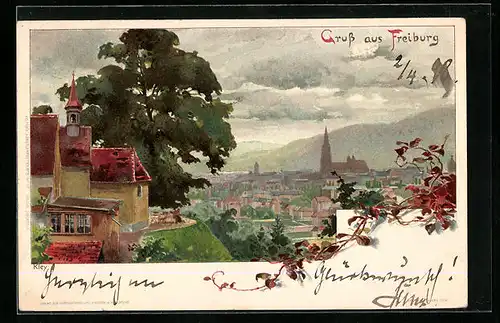 Gruß aus Freiburg
2/4. 98.
Kley.
Herzlichen
Glückwunsch!